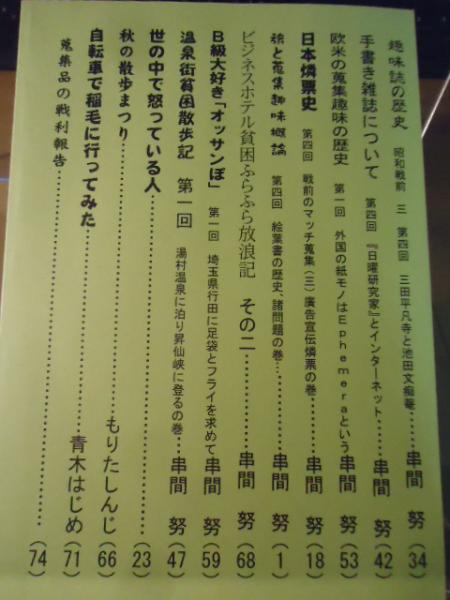 趣味誌の歴史 昭和戦前 三 第四回 三田平凡寺と池田文痴菴………串間 努(34)
手書き雑誌について 第四回 『日曜研究家』とインターネット……串間 努(42)
欧米の蒐集趣味の歴史 第一回 外国の紙モノはEphemeraという 串間 努(53)
日本燐票史 第四回 戦前のマッチ蒐集(三)廣告宣伝燐票の巻……串間 努(18)
続と蒐集趣味概論 第四回 絵葉書の歴史、諸問題の巻……串間 努(1)
ビジネスホテル貧困ふらふら放浪記 その二……………串間 努(68)
B級大好き「オッサンぽ」 第一回 埼玉県行田に足袋とフライを求めて 串間 努(59)
温泉街貧困散歩記 第一回 湯村温泉に泊り昇仙峡に登るの巻…串間 努(47)
世の中で怒っている人………………………………(23)
秋の散歩まつり………………………もりたしんじ(66)
自転車で稲毛に行ってみた………………青木はじめ(71)
蒐集品の戦利報告………………………………(74)